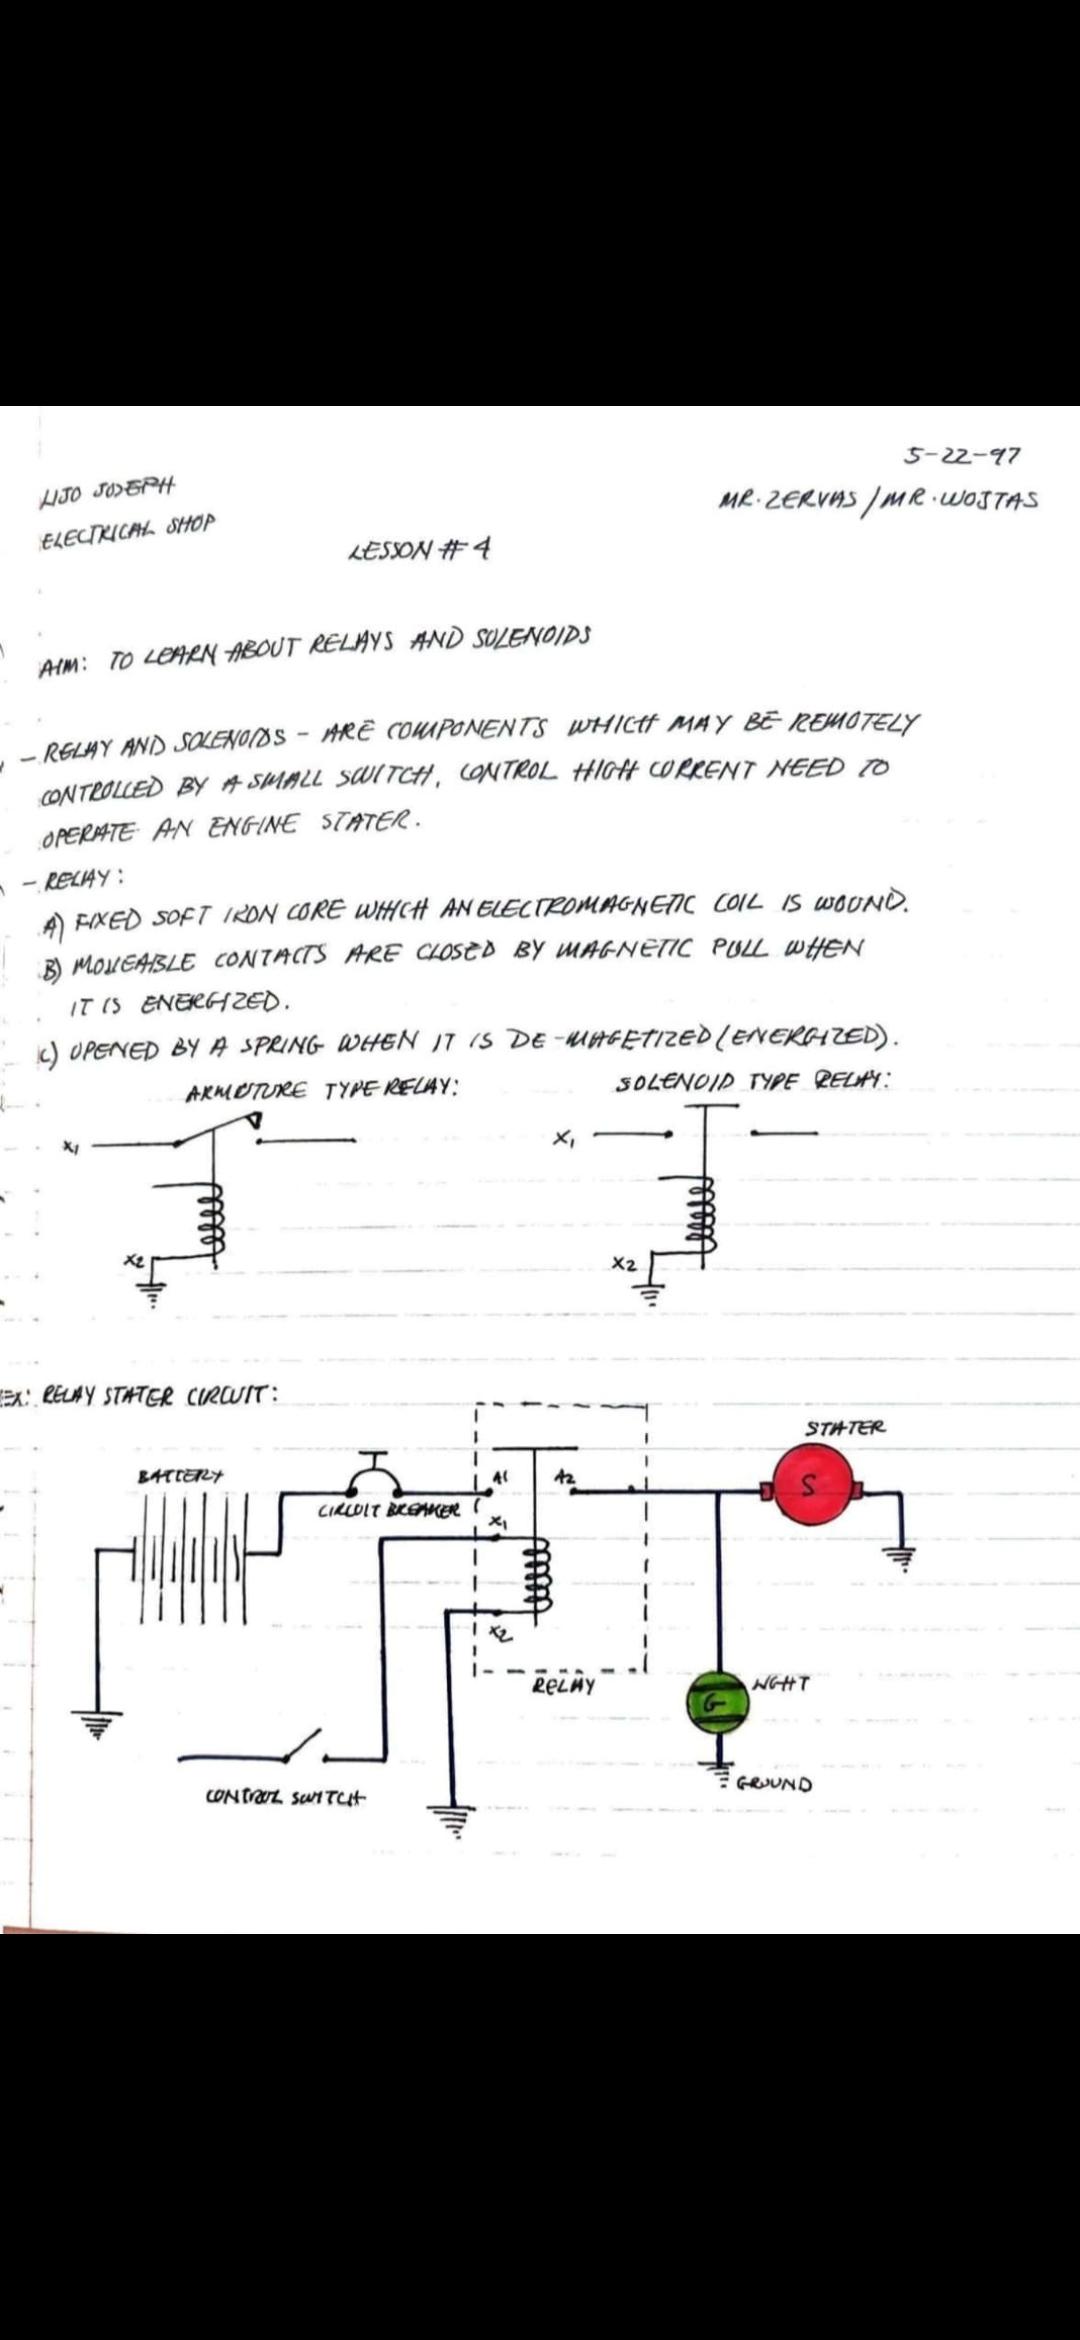 5-22-97
LIJO JOSEPH
MR. ZERVAS / MR. WOJTAS
ELECTRICAL SHOP
LESSON # 4
AIM: TO LEARN ABOUT RELAYS AND SOLENOIDS
- RELAY AND SOLENOIDS - ARE COMPONENTS WHICH MAY BE REMOTELY
CONTROLLED BY A SMALL SWITCH, CONTROL HIGH CURRENT NEED TO
OPERATE AN ENGINE STATER.
- RELAY:
A) FIXED SOFT IRON CORE WHICH AN ELECTROMAGNETIC COIL IS WOUND.
B) MOVEABLE CONTACTS ARE CLOSED BY MAGNETIC PULL WHEN
IT IS ENERGIZED.
C) OPENED BY A SPRING WHEN IT IS DE-MAGETIZED (ENERGIZED).
ARMUTURE TYPE RELAY:
SOLENOID TYPE RELAY:
X1
X1
X2
X2
EX: RELAY STATER CIRCUIT:
STATER
BATTERY
A1
A2
S
CIRCUIT BREAKER
X1
X2
RELAY
LIGHT
G
GROUND
CONTROL SWITCH